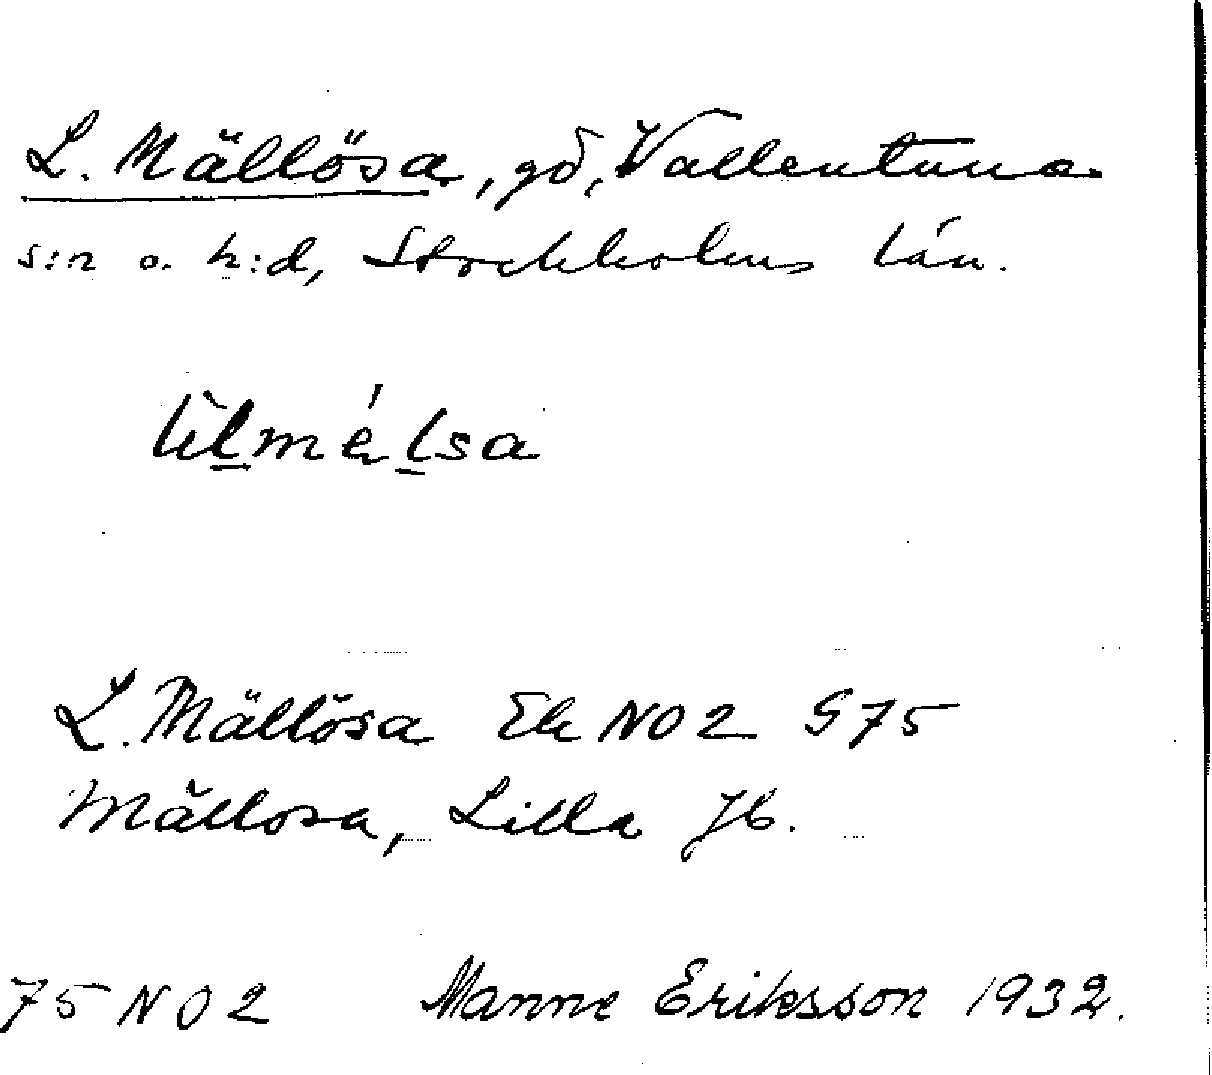 L. Mällösa, gd, Vallentuna
s:n o. h:d, Stockholms län.
lìlmélsa
L. Mällösa Ek NO2 S75
Mällösa, Lilla Jb.
75 NO2 Manne Eriksson 1932.